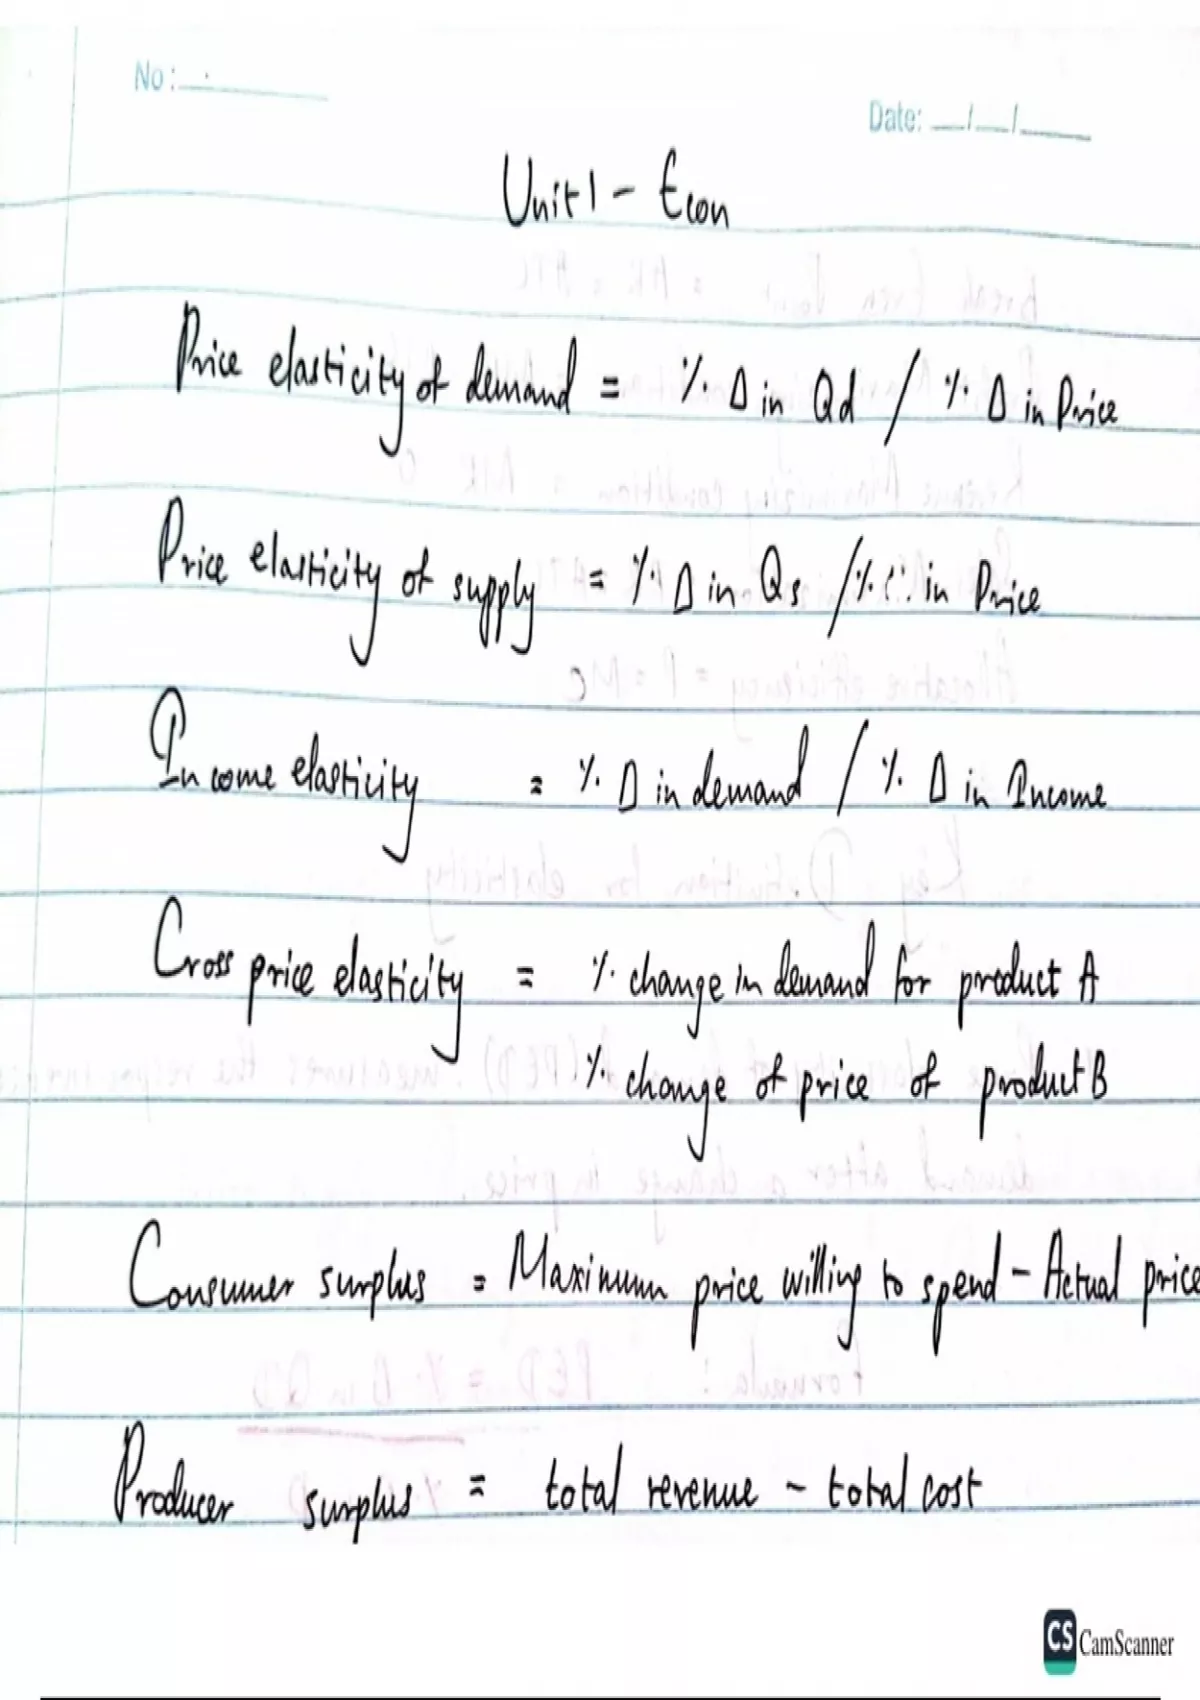 No:
Date: __/__/____
Unit 1 - Econ
Price elasticity of demand = % Δ in Qd / % Δ in Price
Price elasticity of supply = % Δ in Qs / % Δ in Price
Income elasticity = % Δ in demand / % Δ in Income
Cross price elasticity = % change in demand for product A
% change of price of product B
Consumer surplus = Maximum price willing to spend - Actual price
Producer surplus = total revenue - total cost
CS CamScanner